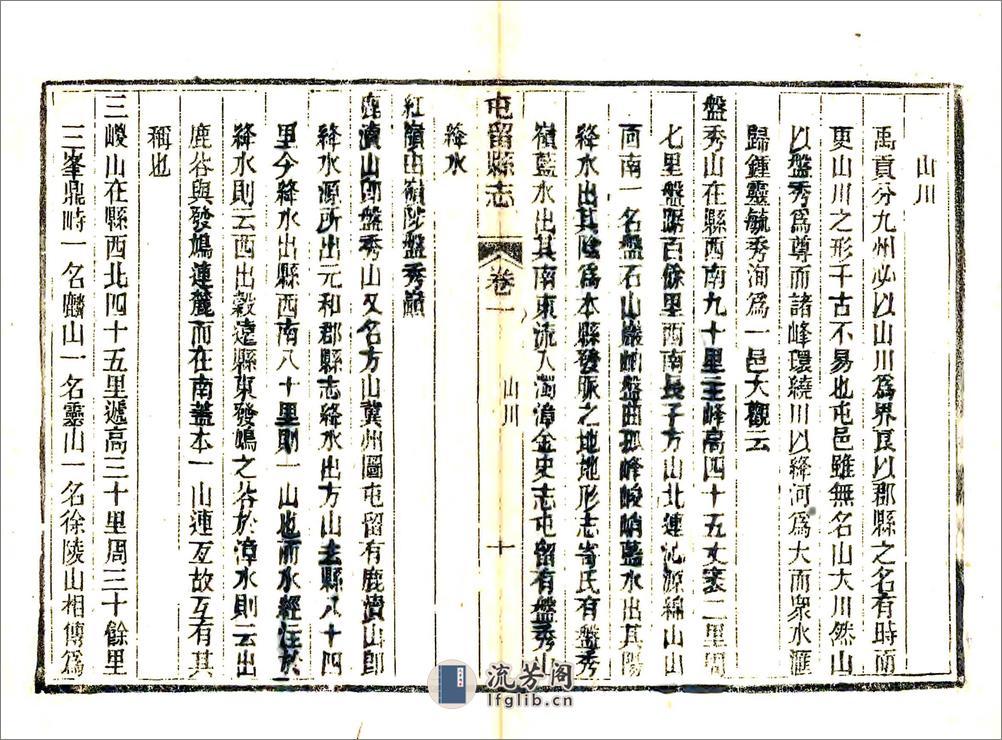 山川
禹貢分九州必以山川爲界良以郡縣之名有時而
更山川之形千古不易也屯邑雖無名山大川然山
以盤秀爲尊而諸峰環繞川以絳河爲大而衆水滙
歸鍾靈毓秀洵爲一邑大觀云
盤秀山在縣西南九十里主峰高四十五丈袤二里周
七里盤踞百餘里西南長子方山北連沁源綿山山
而南一名盤石山巖岫盤曲孤峰峻峭藍水出其陽
絳水出其陰爲本縣發脈之地地形志寄氏有盤秀
嶺藍水出其南東流入濁漳金史志屯留有盤秀山
絳水
屯留縣志 卷一 山川 十
紅嶺山嶺陟盤秀嶺
鹿瀆山卽盤秀山又名方山冀州圖屯留有鹿瀆山卽
絳水源所出元和郡縣志絳水出方山去縣八十四
里今絳水出縣西南八十里則一山也而水經注於
絳水則云西出穀遠縣東發鳩之谷於漳水則云出
鹿谷與發鳩連麓而在南蓋本一山連亙故互有其
稱也
三嵕山在縣西北四十五里遞高三十里周三十餘里
三峯鼎峙一名麟山一名靈山一名徐陵山相傳爲
流芳阁
lfglib.cn